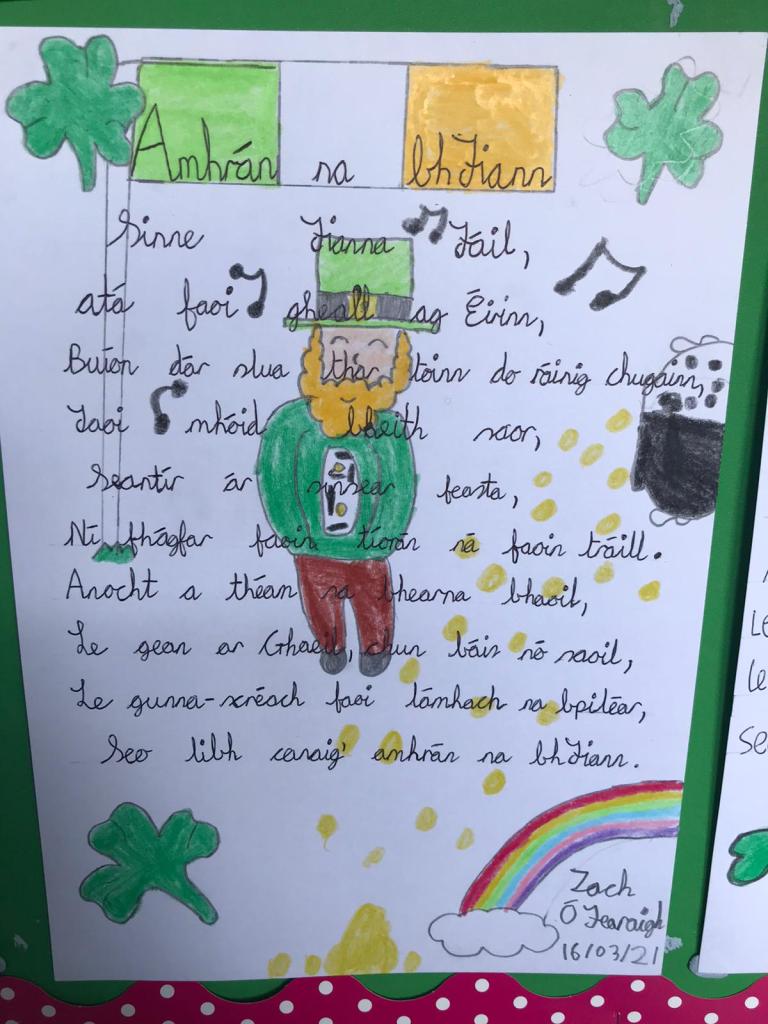 Amhrán na bhFiann
Sinne Fianna Fáil,
atá faoi gheall ag Éirinn,
Buíon dár slua thar toinn do ráinig chugainn,
Faoi mhóid bheith saor,
Seantír ár sinsear feasta,
Ní fhágfar faoin tíorán ná faoin tráill.
Anocht a théam sa bhearna bhaoil,
Le gean ar Ghaeil, chun báis nó saoil,
Le gunna-scréach faoi lámhach na bpiléar,
Seo libh canaig' amhrán na bhFiann.
Zach
Ó Fearaigh
16/03/21
Le
le
Se